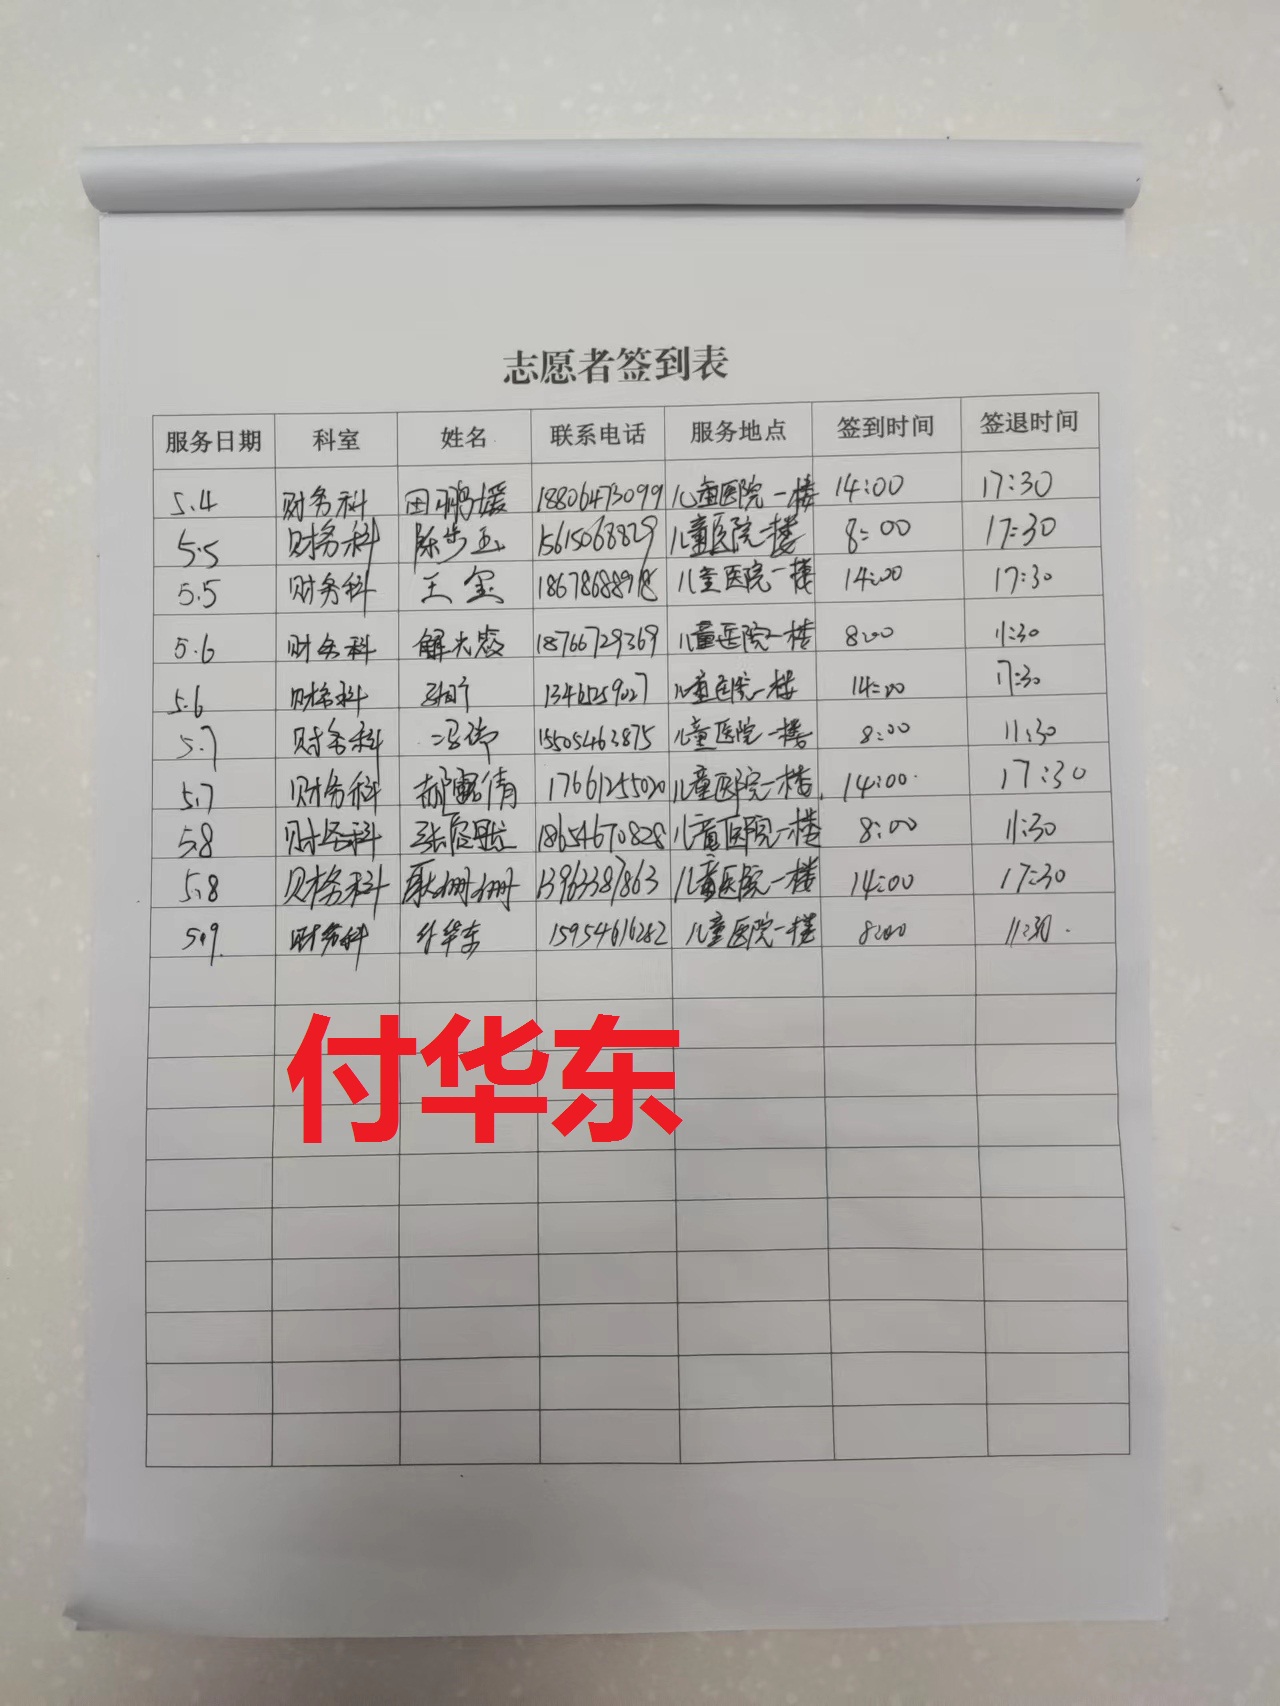 志愿者签到表
服务日期 科室 姓名 联系电话 服务地点 签到时间 签退时间
5.4 财务科 田鹏媛 18806473099 儿童医院一楼 14:00 17:30
5.5 财务科 陈步玉 15615068829 儿童医院一楼 8:00 17:30
5.5 财务科 王玺 18678688918 儿童医院一楼 14:00 17:30
5.6 财务科 解光姣 18766729369 儿童医院一楼 8:00 11:30
5.6 财务科 儿童医院一楼 14:00 17:30
5.7 财务科 冯瑞 15505463875 儿童医院一楼 8:00 11:30
5.7 财务科 郝露倩 17661255020 儿童医院一楼 14:00 17:30
5.8 财务科 18654670828 儿童医院一楼 8:00 11:30
5.8 财务科 耿珊珊 13963387863 儿童医院一楼 14:00 17:30
5.9 财务科 付华东 15954616282 儿童医院一楼 8:00 11:30
付华东